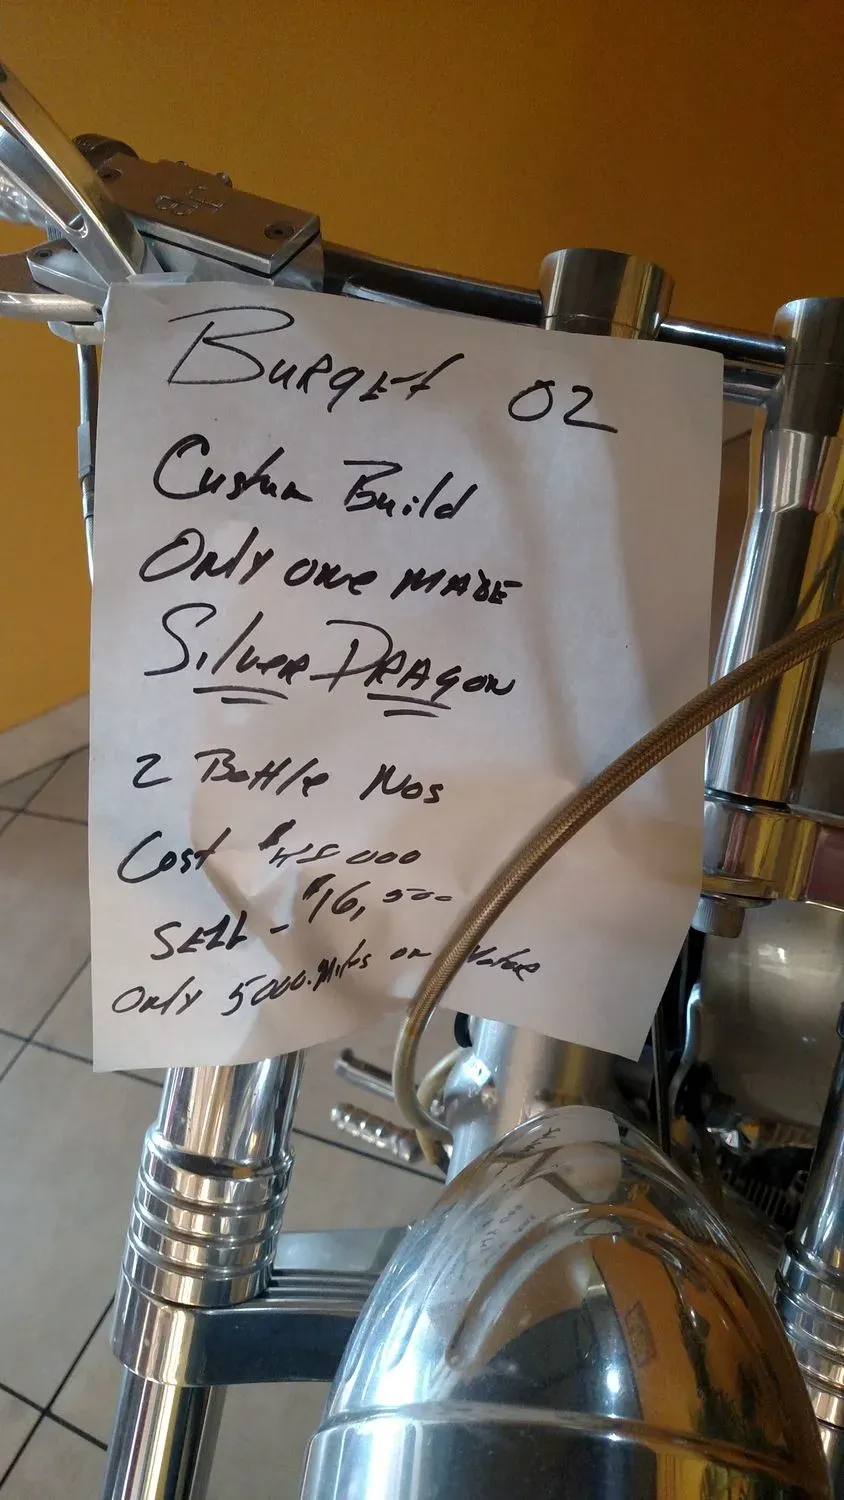 BURGET 02
Custum Build
Only one MADE
Silver DRAGON
2 Bottle Nos
Cost $45000
SELL - $16,500
Only 5000. Miles on